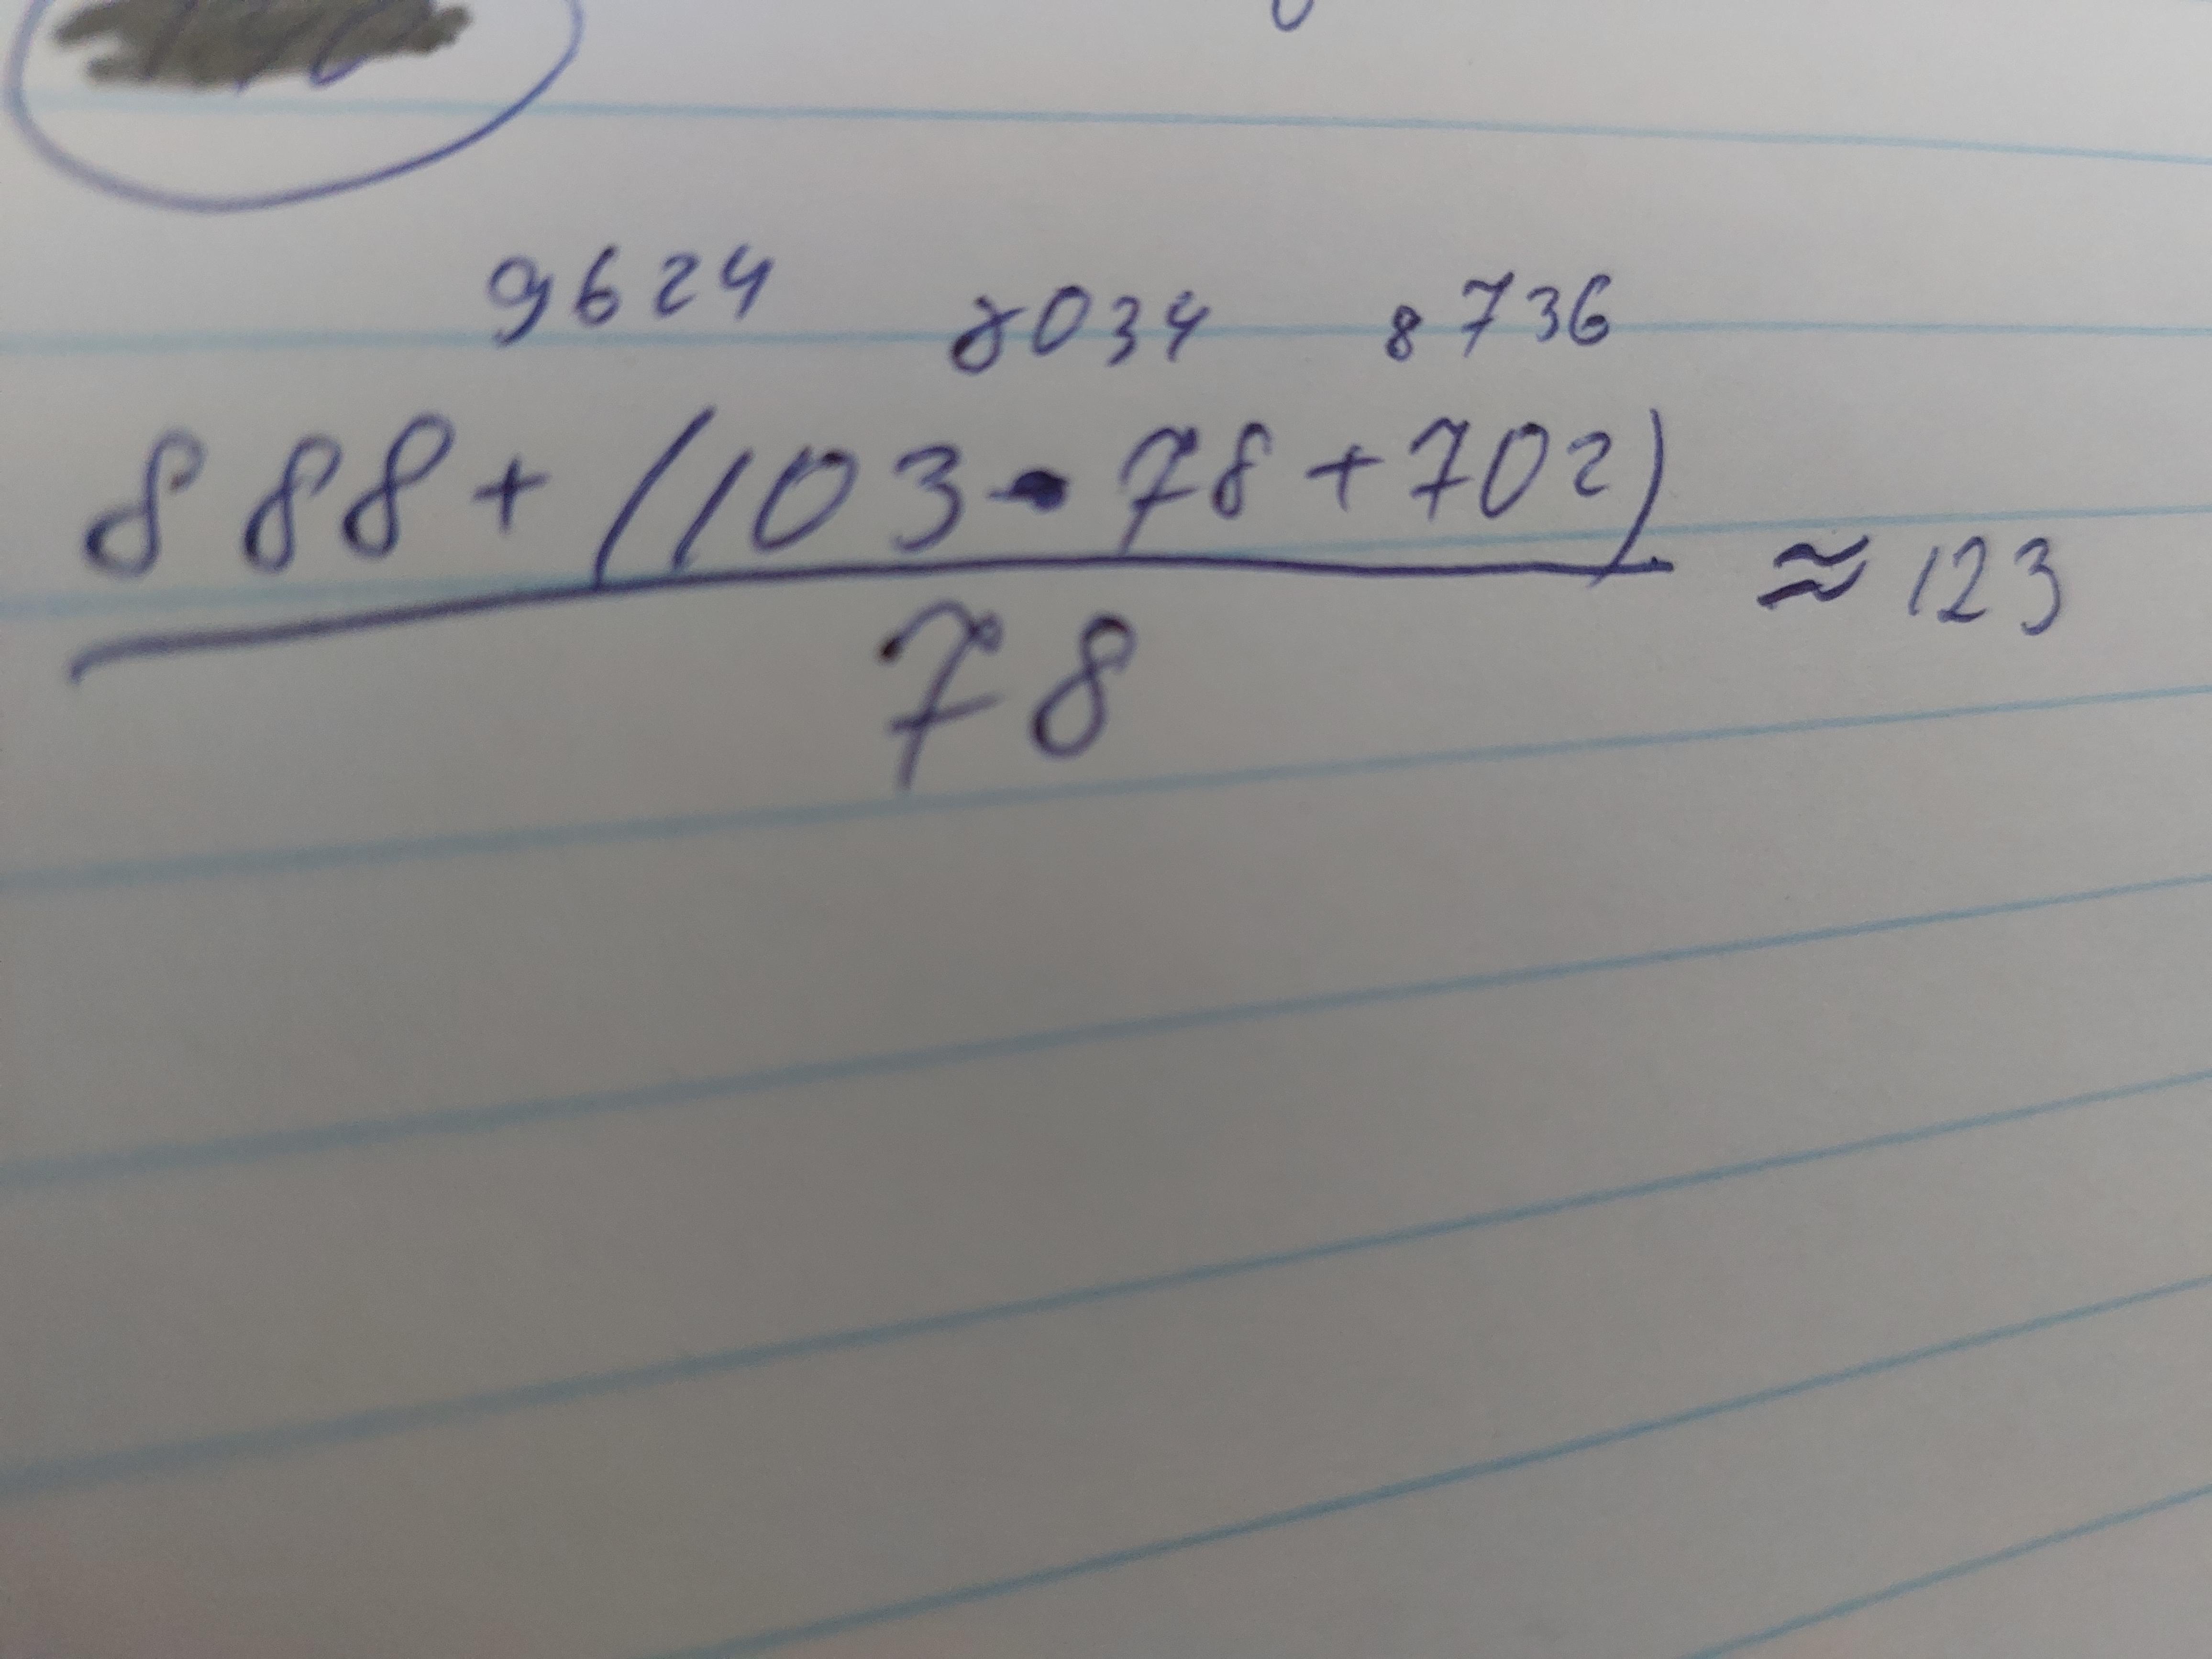 9624 8034 8736
888+(103•78+702)
≈123
78